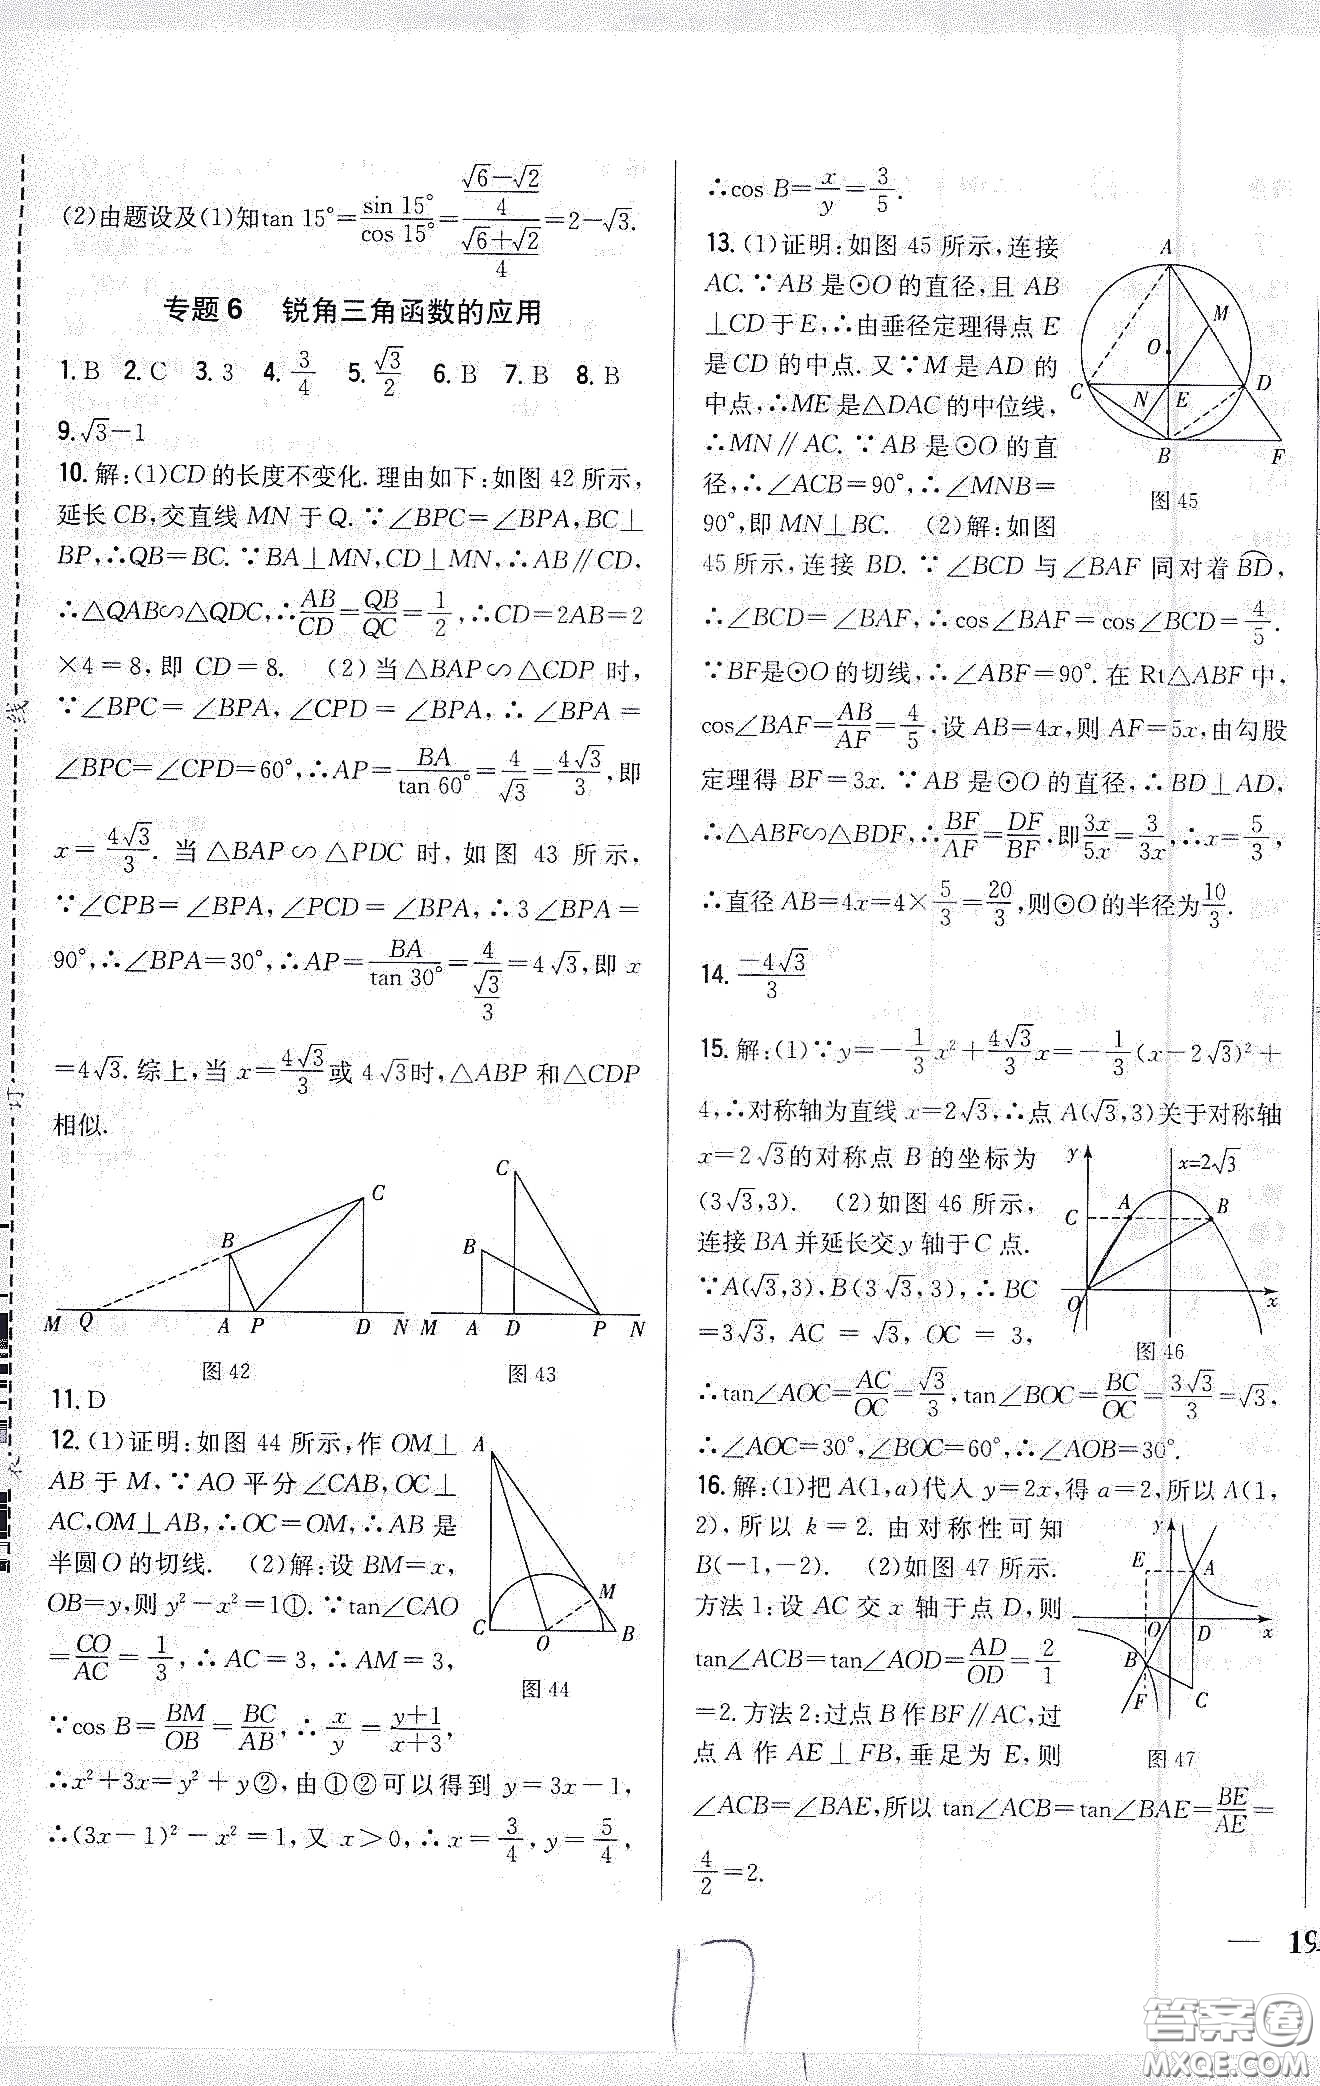 (2)由题设及(1)知tan 15°=sin 15°/cos 15°=((√6-√2)/4)/((√6+√2)/4)=2-√3.
专题6 锐角三角函数的应用
1. B 2. C 3. 3 4. 3/4 5. √3/2 6. B 7. B 8. B
9. √3-1
10. 解:(1)CD的长度不变化.理由如下:如图42所示,
延长CB,交直线MN于Q.∵∠BPC=∠BPA,BC⊥
BP,∴QB=BC.∵BA⊥MN,CD⊥MN,∴AB∥CD,
∴△QAB∽△QDC,∴AB/CD=QB/QC=1/2,∴CD=2AB=2
×4=8,即CD=8. (2)当△BAP∽△CDP时,
∵∠BPC=∠BPA,∠CPD=∠BPA,∴∠BPA=
∠BPC=∠CPD=60°,∴AP=BA/tan 60°=4/√3=4√3/3,即
x=4√3/3.当△BAP∽△PDC时,如图43所示,
∵∠CPB=∠BPA,∠PCD=∠BPA,∴3∠BPA=
90°,∴∠BPA=30°,∴AP=BA/tan 30°=4/(√3/3)=4√3,即x
=4√3.综上,当x=4√3/3或4√3时,△ABP和△CDP
相似.
C
B
M Q A P D N
图42
C
B
M A D P N
图43
11. D
12. (1)证明:如图44所示,作OM⊥
AB于M,∵AO平分∠CAB,OC⊥
AC,OM⊥AB,∴OC=OM,∴AB是
半圆O的切线. (2)解:设BM=x,
OB=y,则y²-x²=1①.∵tan∠CAO
=CO/AC=1/3,∴AC=3,∴AM=3,
∵cos B=BM/OB=BC/AB,∴x/y=(y+1)/(x+3),
∴x²+3x=y²+y②,由①②可以得到y=3x-1,
∴(3x-1)²-x²=1,又x>0,∴x=3/4,y=5/4,
A
M
C O B
图44
∴cos B=x/y=3/5.
13. (1)证明:如图45所示,连接
AC.∵AB是⊙O的直径,且AB
⊥CD于E,∴由垂径定理得点E
是CD的中点.又∵M是AD的
中点,∴ME是△DAC的中位线,
∴MN∥AC.∵AB是⊙O的直
径,∴∠ACB=90°,∴∠MNB=
90°,即MN⊥BC. (2)解:如图
45所示,连接BD.∵∠BCD与∠BAF同对着BD,
∴∠BCD=∠BAF,∴cos∠BAF=cos∠BCD=4/5.
∵BF是⊙O的切线,∴∠ABF=90°.在Rt△ABF中,
cos∠BAF=AB/AF=4/5,设AB=4x,则AF=5x,由勾股
定理得BF=3x.∵AB是⊙O的直径,∴BD⊥AD,
∴△ABF∽△BDF,∴BF/AF=DF/BF,即3x/5x=3/3x,∴x=5/3,
∴直径AB=4x=4×5/3=20/3,则⊙O的半径为10/3.
A
M
O
C N E D
B F
图45
14. -4√3/3
15. 解:(1)∵y=-1/3x²+4√3/3x=-1/3(x-2√3)²+
4,∴对称轴为直线x=2√3,∴点A(√3,3)关于对称轴
x=2√3的对称点B的坐标为
(3√3,3). (2)如图46所示,
连接BA并延长交y轴于C点.
∵A(√3,3),B(3√3,3),∴BC
=3√3,AC=√3,OC=3,
∴tan∠AOC=AC/OC=√3/3,tan∠BOC=BC/OC=3√3/3=√3,
∴∠AOC=30°,∠BOC=60°,∴∠AOB=30°.
y
x=2√3
A B
C
O x
图46
16. 解:(1)把A(1,a)代入y=2x,得a=2,所以A(1,
2),所以k=2.由对称性可知
B(-1,-2). (2)如图47所示.
方法1:设AC交x轴于点D,则
tan∠ACB=tan∠AOD=AD/OD=2/1
=2.方法2:过点B作BF∥AC,过
点A作AE⊥FB,垂足为E,则
∠ACB=∠BAE,所以tan∠ACB=tan∠BAE=BE/AE=
4/2=2.
y
E A
O D x
B
F C
图47
线
订
— 19
17
答案圈
MXQE.COM